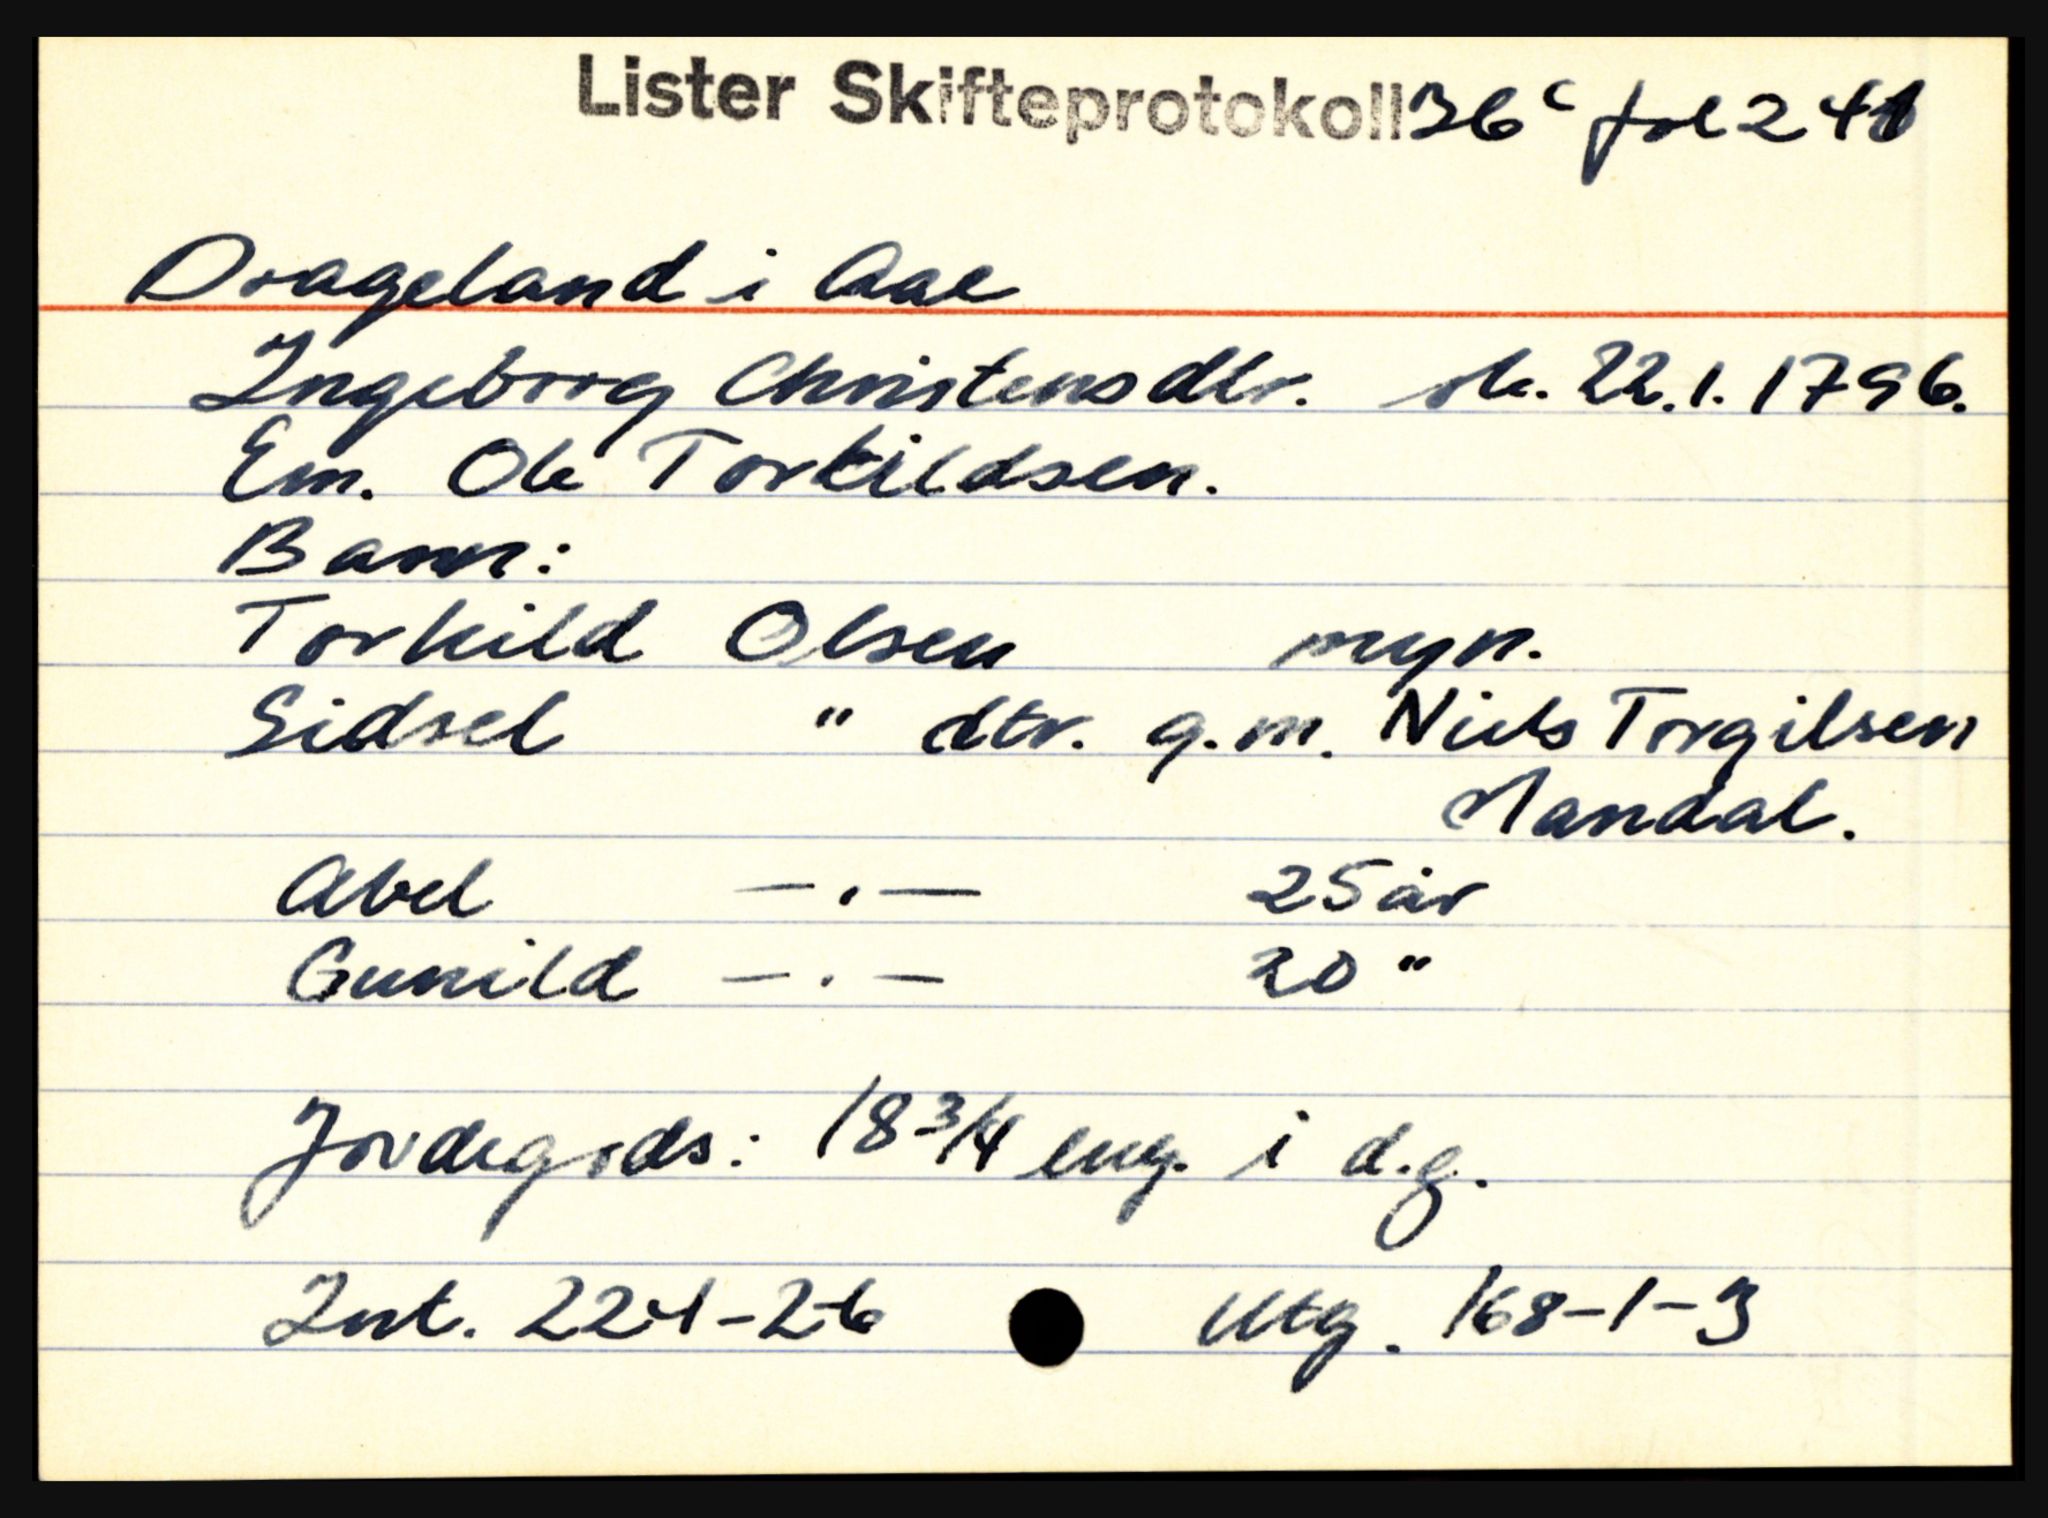 Lister Skifteprotokoll 36c fol 241
Drageland i Aae
Ingeborg Christensdtr. sk. 22.1.1796.
Em. Ole Torkildsen.
Barn:
Torkild Olsen myn.
Sidsel " dtr. g.m. Niels Torgilsen
Mandal.
Abel —.— 25 år
Gunild —.— 20 "
Jordegods: 18 3/4 eng. i d.g.
Int. 224-2-6 Utg. 168-1-3